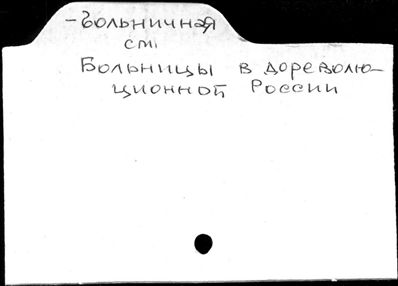 -Больничная
см
Больницы в дореволю-
ционной России